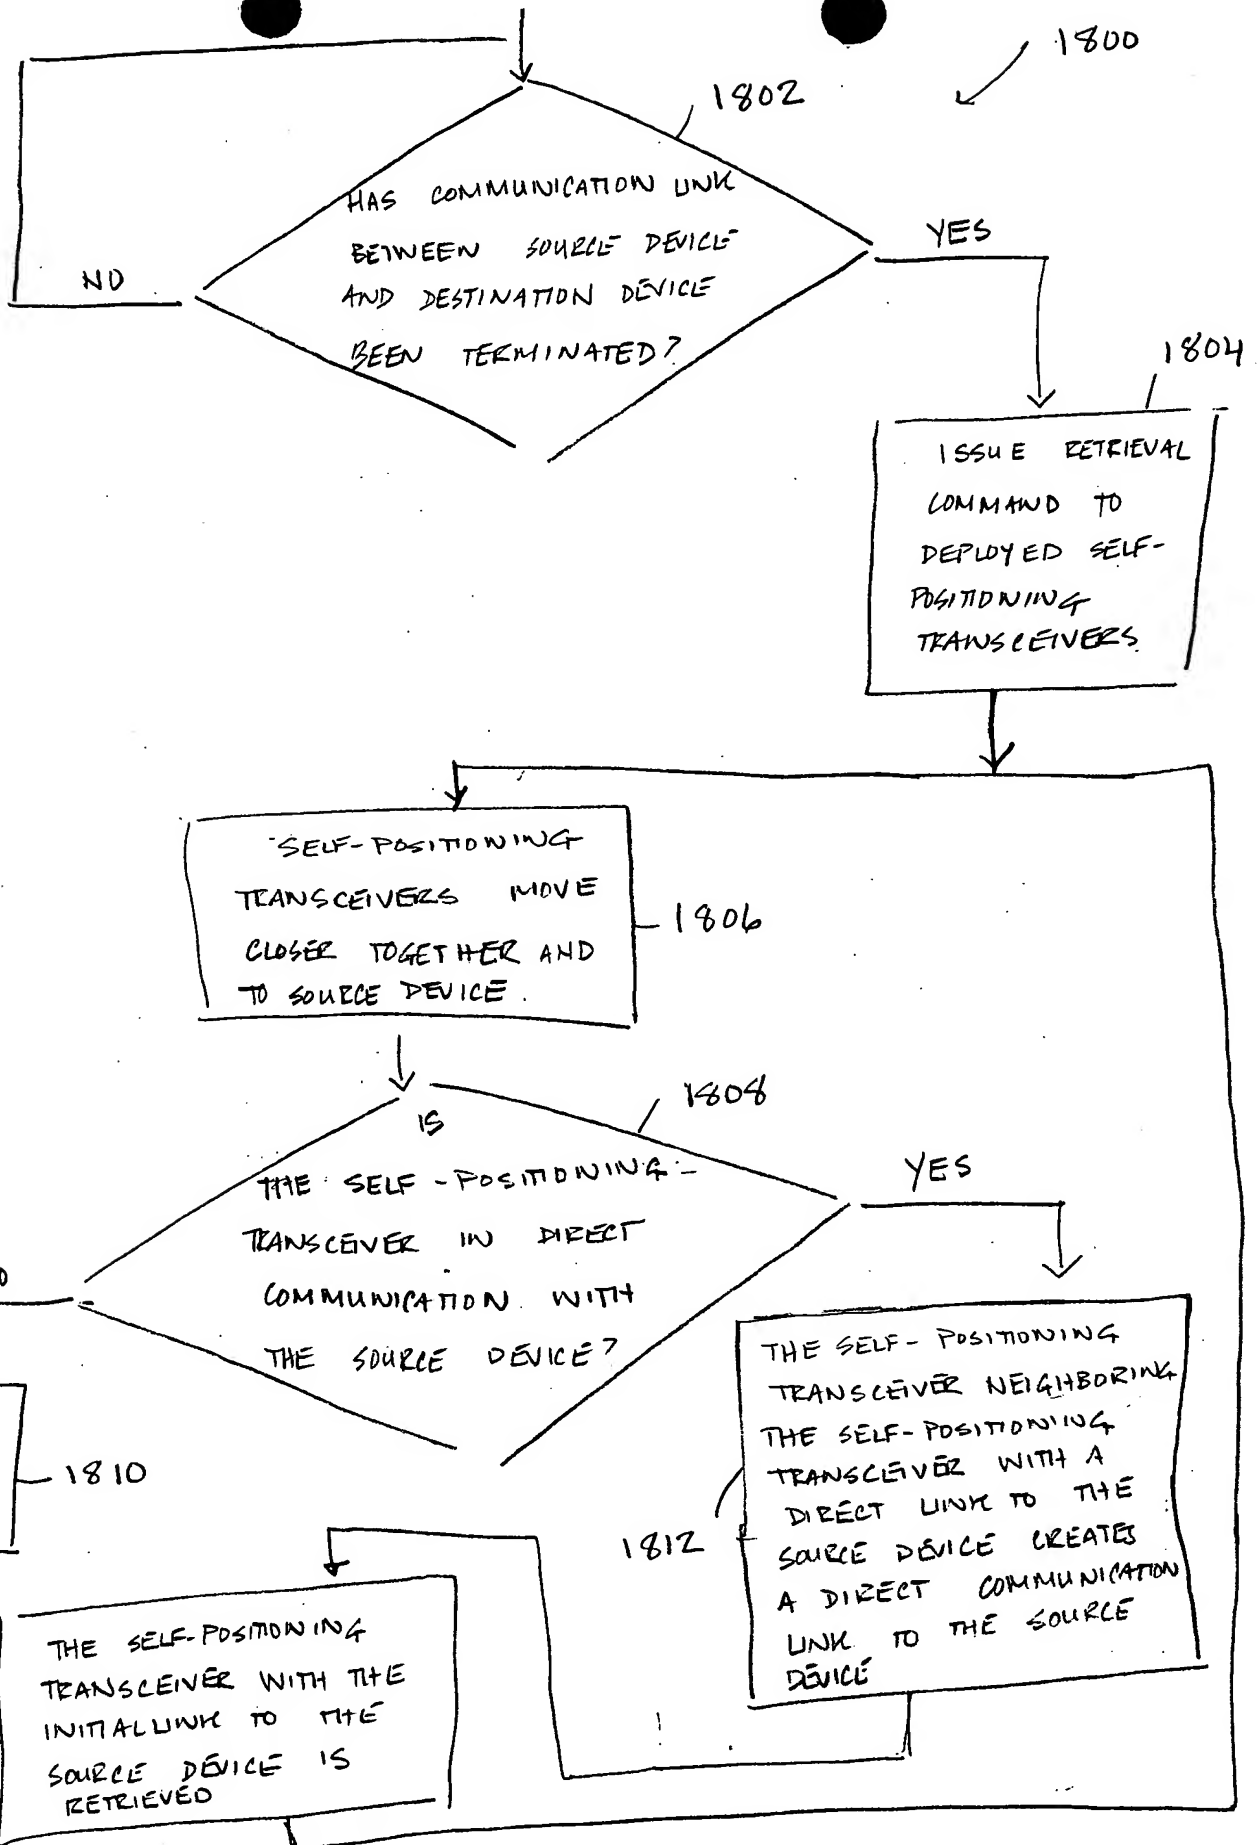 1800
1802
HAS COMMUNICATION LINK
BETWEEN SOURCE DEVICE
AND DESTINATION DEVICE
BEEN TERMINATED?
NO
YES
1804
ISSUE RETRIEVAL
COMMAND TO
DEPLOYED SELF-
POSITIONING
TRANSCEIVERS.
SELF-POSITIONING
TRANSCEIVERS MOVE
CLOSER TOGETHER AND
TO SOURCE DEVICE.
1806
1808
IS
THE SELF-POSITIONING
TRANSCEIVER IN DIRECT
COMMUNICATION WITH
THE SOURCE DEVICE?
YES
THE SELF-POSITIONING
TRANSCEIVER NEIGHBORING
THE SELF-POSITIONING
TRANSCEIVER WITH A
DIRECT LINK TO THE
SOURCE DEVICE CREATES
A DIRECT COMMUNICATION
LINK TO THE SOURCE
DEVICE
1810
1812
THE SELF-POSITIONING
TRANSCEIVER WITH THE
INITIAL LINK TO THE
SOURCE DEVICE IS
RETRIEVED